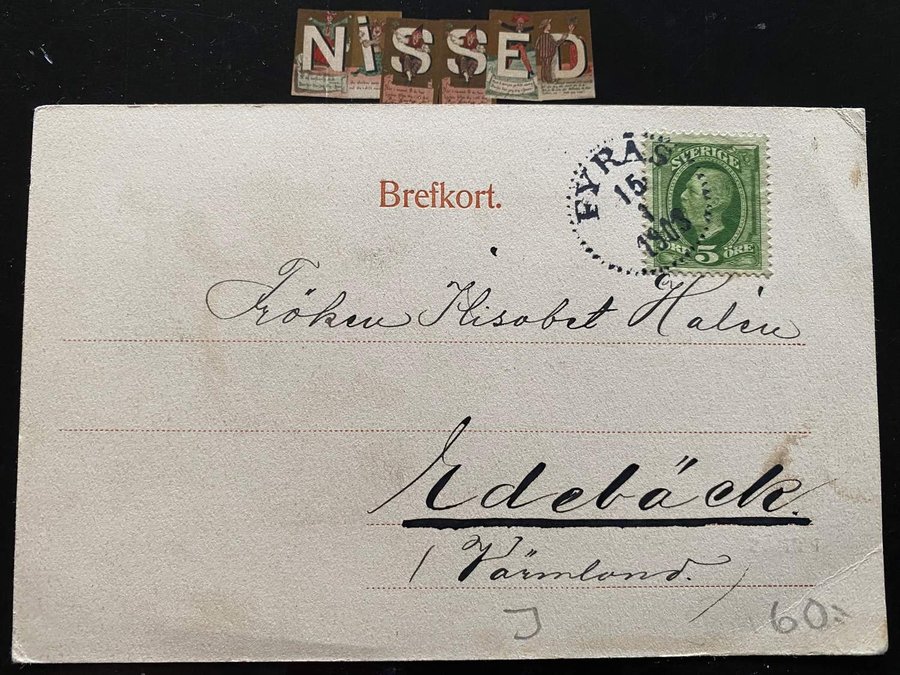 NiSSED
Brefkort.
FYRÅS
15
1
1903
SVERIGE
5 ÖRE
Fröken Elisabet Halén
Edebäck.
(Värmland.)
J
60:-